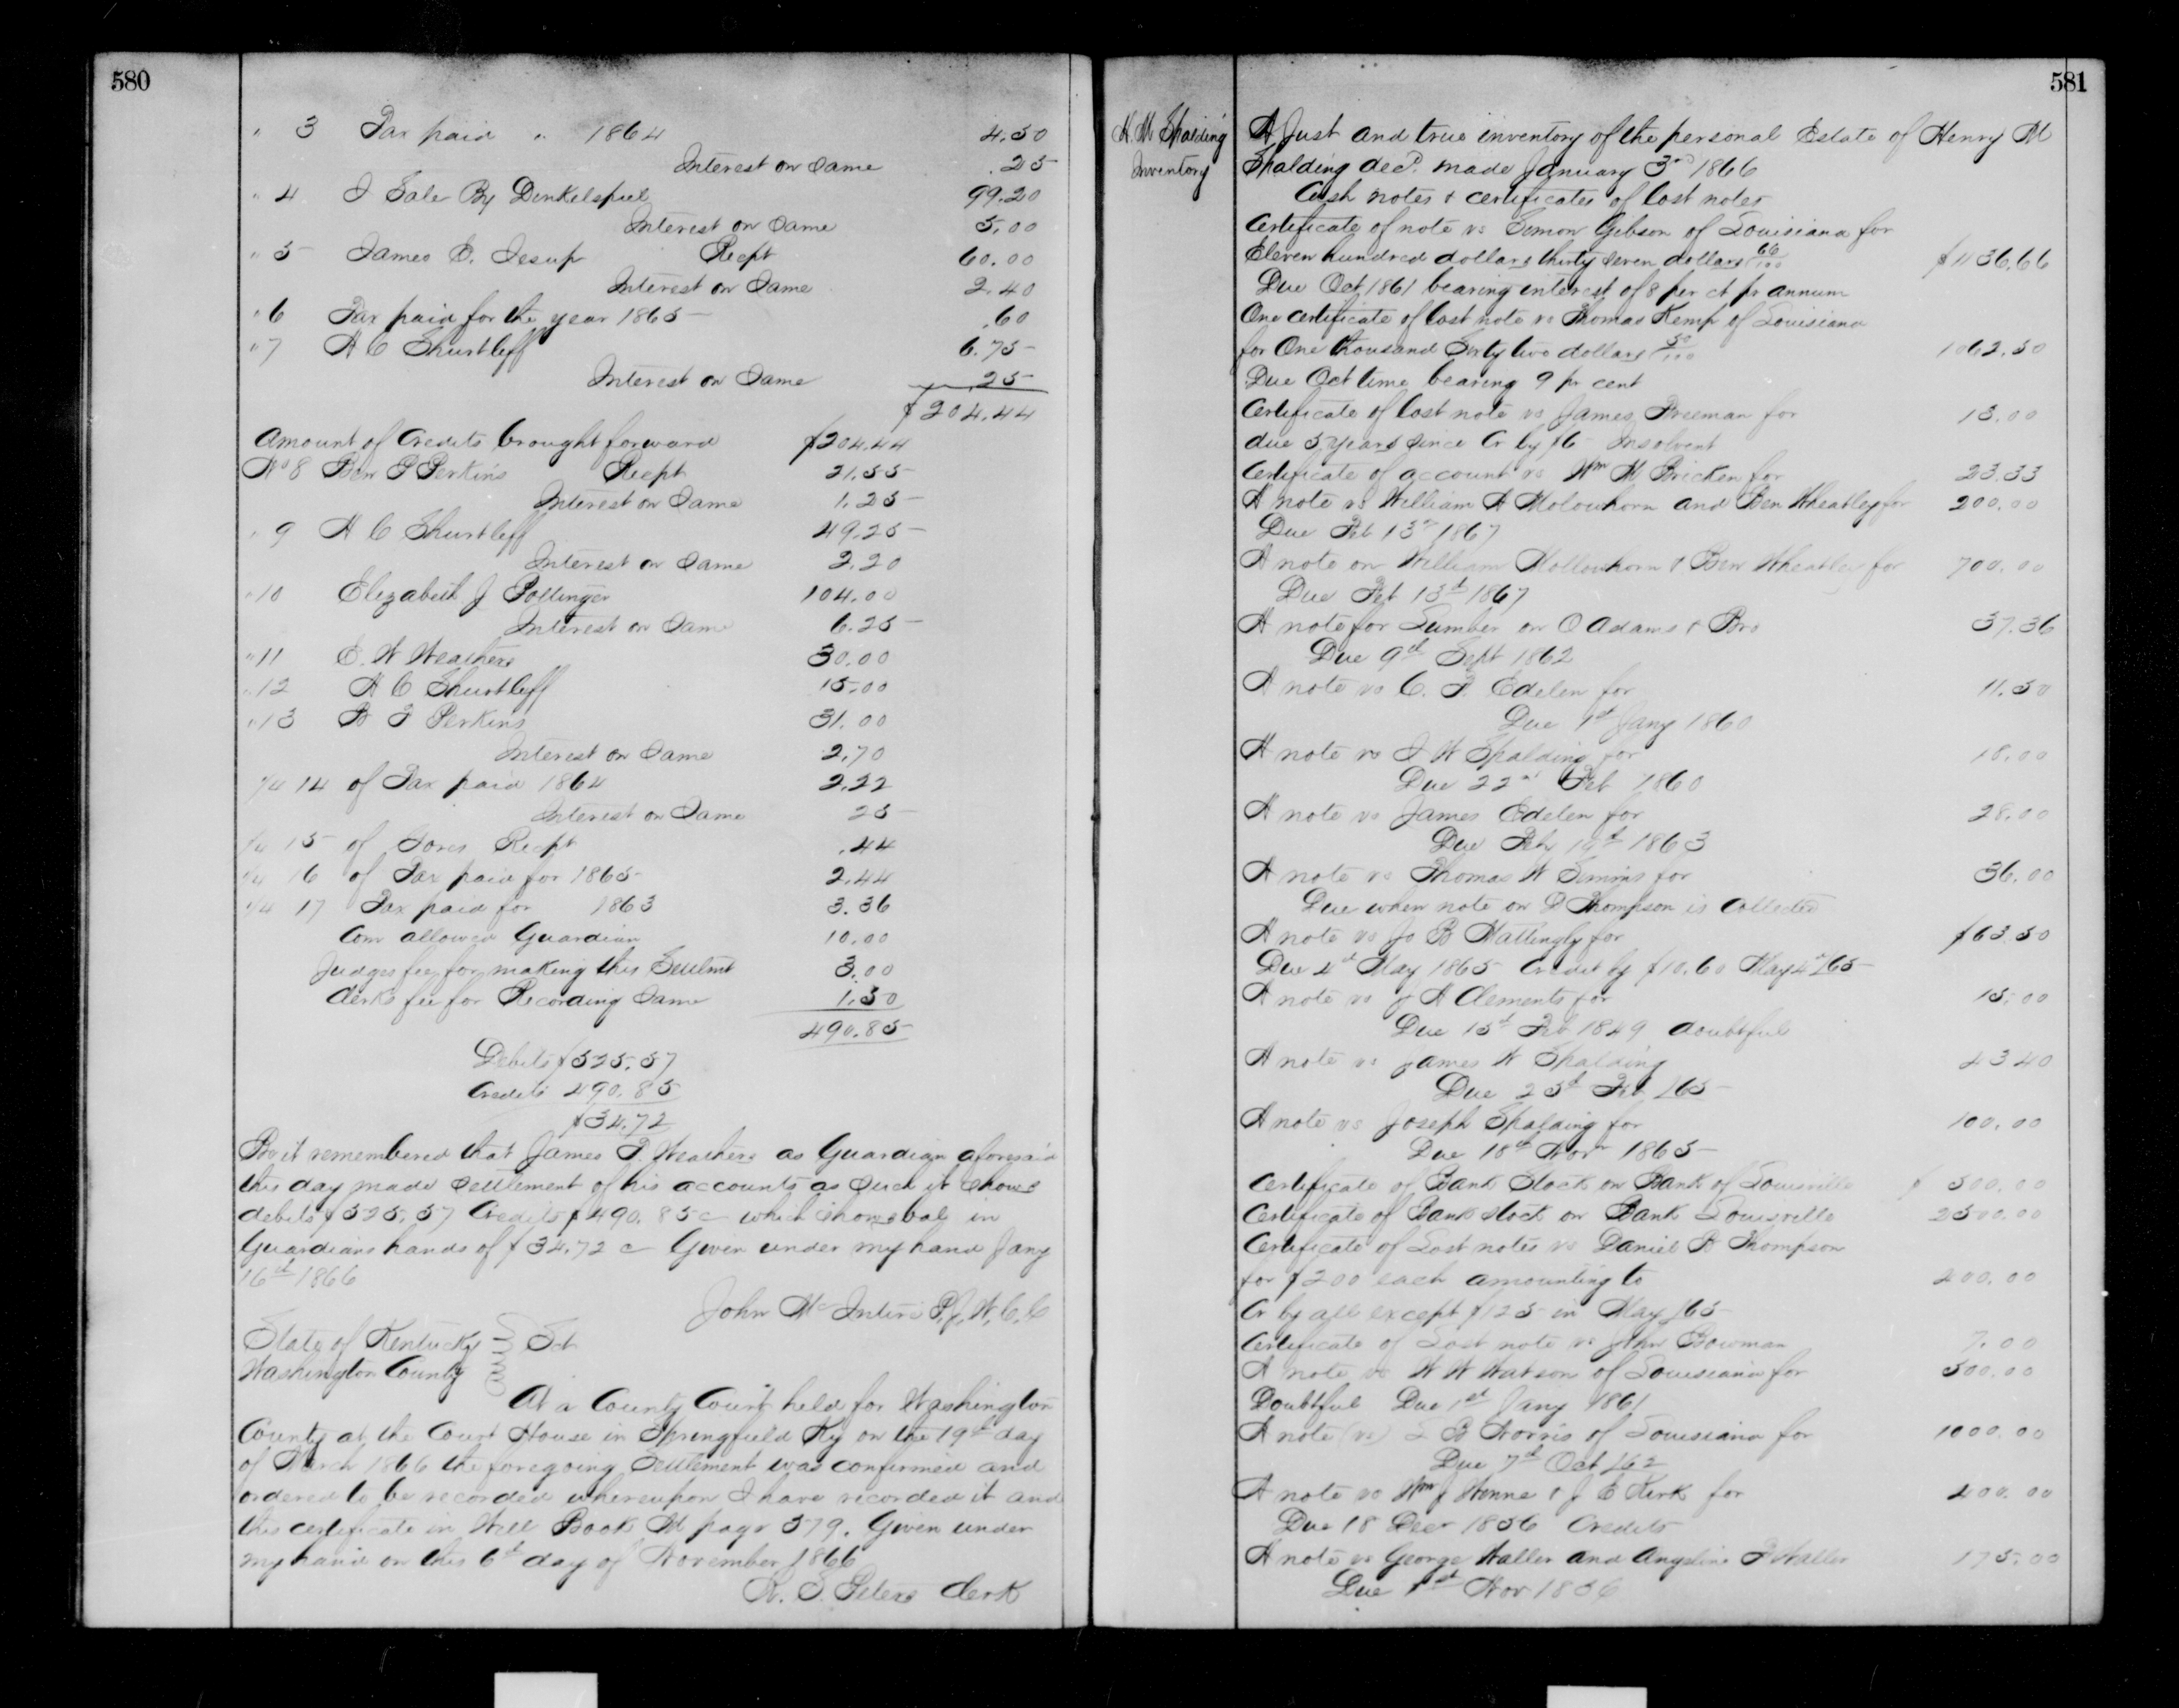 580
" 3 Tax paid " 1864 4.50
Interest on Same .25
" 4 I Sale By Dinkelspiel 99.20
Interest on Same 5.00
" 5 James E. Jesup Recpt 60.00
Interest on Same 2.40
" 6 Tax paid for the year 1865 .60
" 7 H C Shurtleff 6.75
Interest on Same 25
$204.44
Amount of Credits brought forward $204.44
No 8 Ben F Perkins Recpt 21.55
Interest on Same 1.25
" 9 H C Shurtleff 49.25
Interest on Same 2.20
" 10 Elizabeth J Pottinger 104.00
Interest on Same 6.25
" 11 E. W Weathers 30.00
" 12 H C Shurtleff 15.00
" 13 B F Perkins 31.00
Interest on Same 2.70
1/4 14 of Tax paid 1864 2.22
Interest on Same 25
1/4 15 of Recpt .44
1/4 16 of Tax paid for 1865 2.44
1/4 17 Tax paid for 1863 3.36
Com allowed Guardian 10.00
Judges fee for making this Settlmt 3.00
Clerks fee for Recording Same 1.50
490.85
Debits $525.57
Credits 490.85
$34.72
Be it remembered that James P. Weathers as Guardian aforesaid
this day made Settlement of his accounts as Such it Shows
debits $525.57 Credits $490.85 c which Shows bal in
Guardians hands of $34.72 c Given under my hand Jany
16th 1866
John McIntire P.J.W.C.C
State of Kentucky Sct
Washington County
At a County Court held for Washington
County at the Court House in Springfield Ky on the 19th day
of March 1866 the foregoing Settlement was confirmed and
ordered to be recorded whereupon I have recorded it and
this certificate in Will Book M page 579. Given under
my hand on this 6th day of November 1866
Clerk
581
H. M Spalding
Inventory
A Just and true inventory of the personal Estate of Henry M
Spalding decd. made January 3rd 1866
Cash notes & certificates of lost notes
Certificate of note vs Simon Gibson of Louisiana for
Eleven hundred dollars thirty Seven dollars 66/100 $1136.66
Due Oct 1861 bearing interest of 8 per ct pr annum
One certificate of lost note vs Thomas Kemp of Louisiana
for One thousand Sixty two dollars 50/100 1062.50
Due Oct time bearing 9 pr cent
Certificate of lost note vs James Freeman for 13.00
due 5 years Since Cr by $6 Insolvent
Certificate of account vs Wm M Bricken for 23.33
A note vs William A Molowhorn and Ben Wheatley for 200.00
Due Feb 13th 1867
A note on William Mollowhorn & Ben Wheatley for 700.00
Due Feb 13th 1867
A note for Lumber on O Adams & Bro 37.36
Due 9th Sept 1862
A note vs C. F. Edelen for 11.50
Due 1st Jany 1860
A note vs I W Spalding for 10.00
Due 22nd Feb 1860
A note vs James Edelen for 28.00
Due Feb 1863
A note vs Thomas W Simms for 36.00
Due when note on D Thompson is Collected
A note vs Jo B Mattingly for $63.50
Due 4th May 1865 Credit by $10.60 May 4th /65
A note vs J A Clements for 15.00
Due 15th Feb 1849 doubtful
A note vs James W Spalding 43 40
Due 25th Feb /65
A note vs Joseph Spalding for 100.00
Due 18th Novr 1865
Certificate of Bank Stock on Bank of Louisville $ 500.00
Certificate of Bank Stock on Bank Louisville 2500.00
Certificate of Lost notes vs Daniel B Thompson
for $200 each amounting to 400.00
Cr by all except $125 in May /65
Certificate of Lost note vs John Bowman 7.00
A note vs W W Watson of Louisiana for 500.00
Doubtful Due 1st Jany 1861
A note (vs) L B Norris of Louisiana for 1000.00
Due 7th Oct /62
A note vs Wm J Winne & J E Kirk for 400.00
Due 18 Decr 1856 Credits
A note vs George Waller and Angeline F Waller 175.00
Due 1st Nov 1856